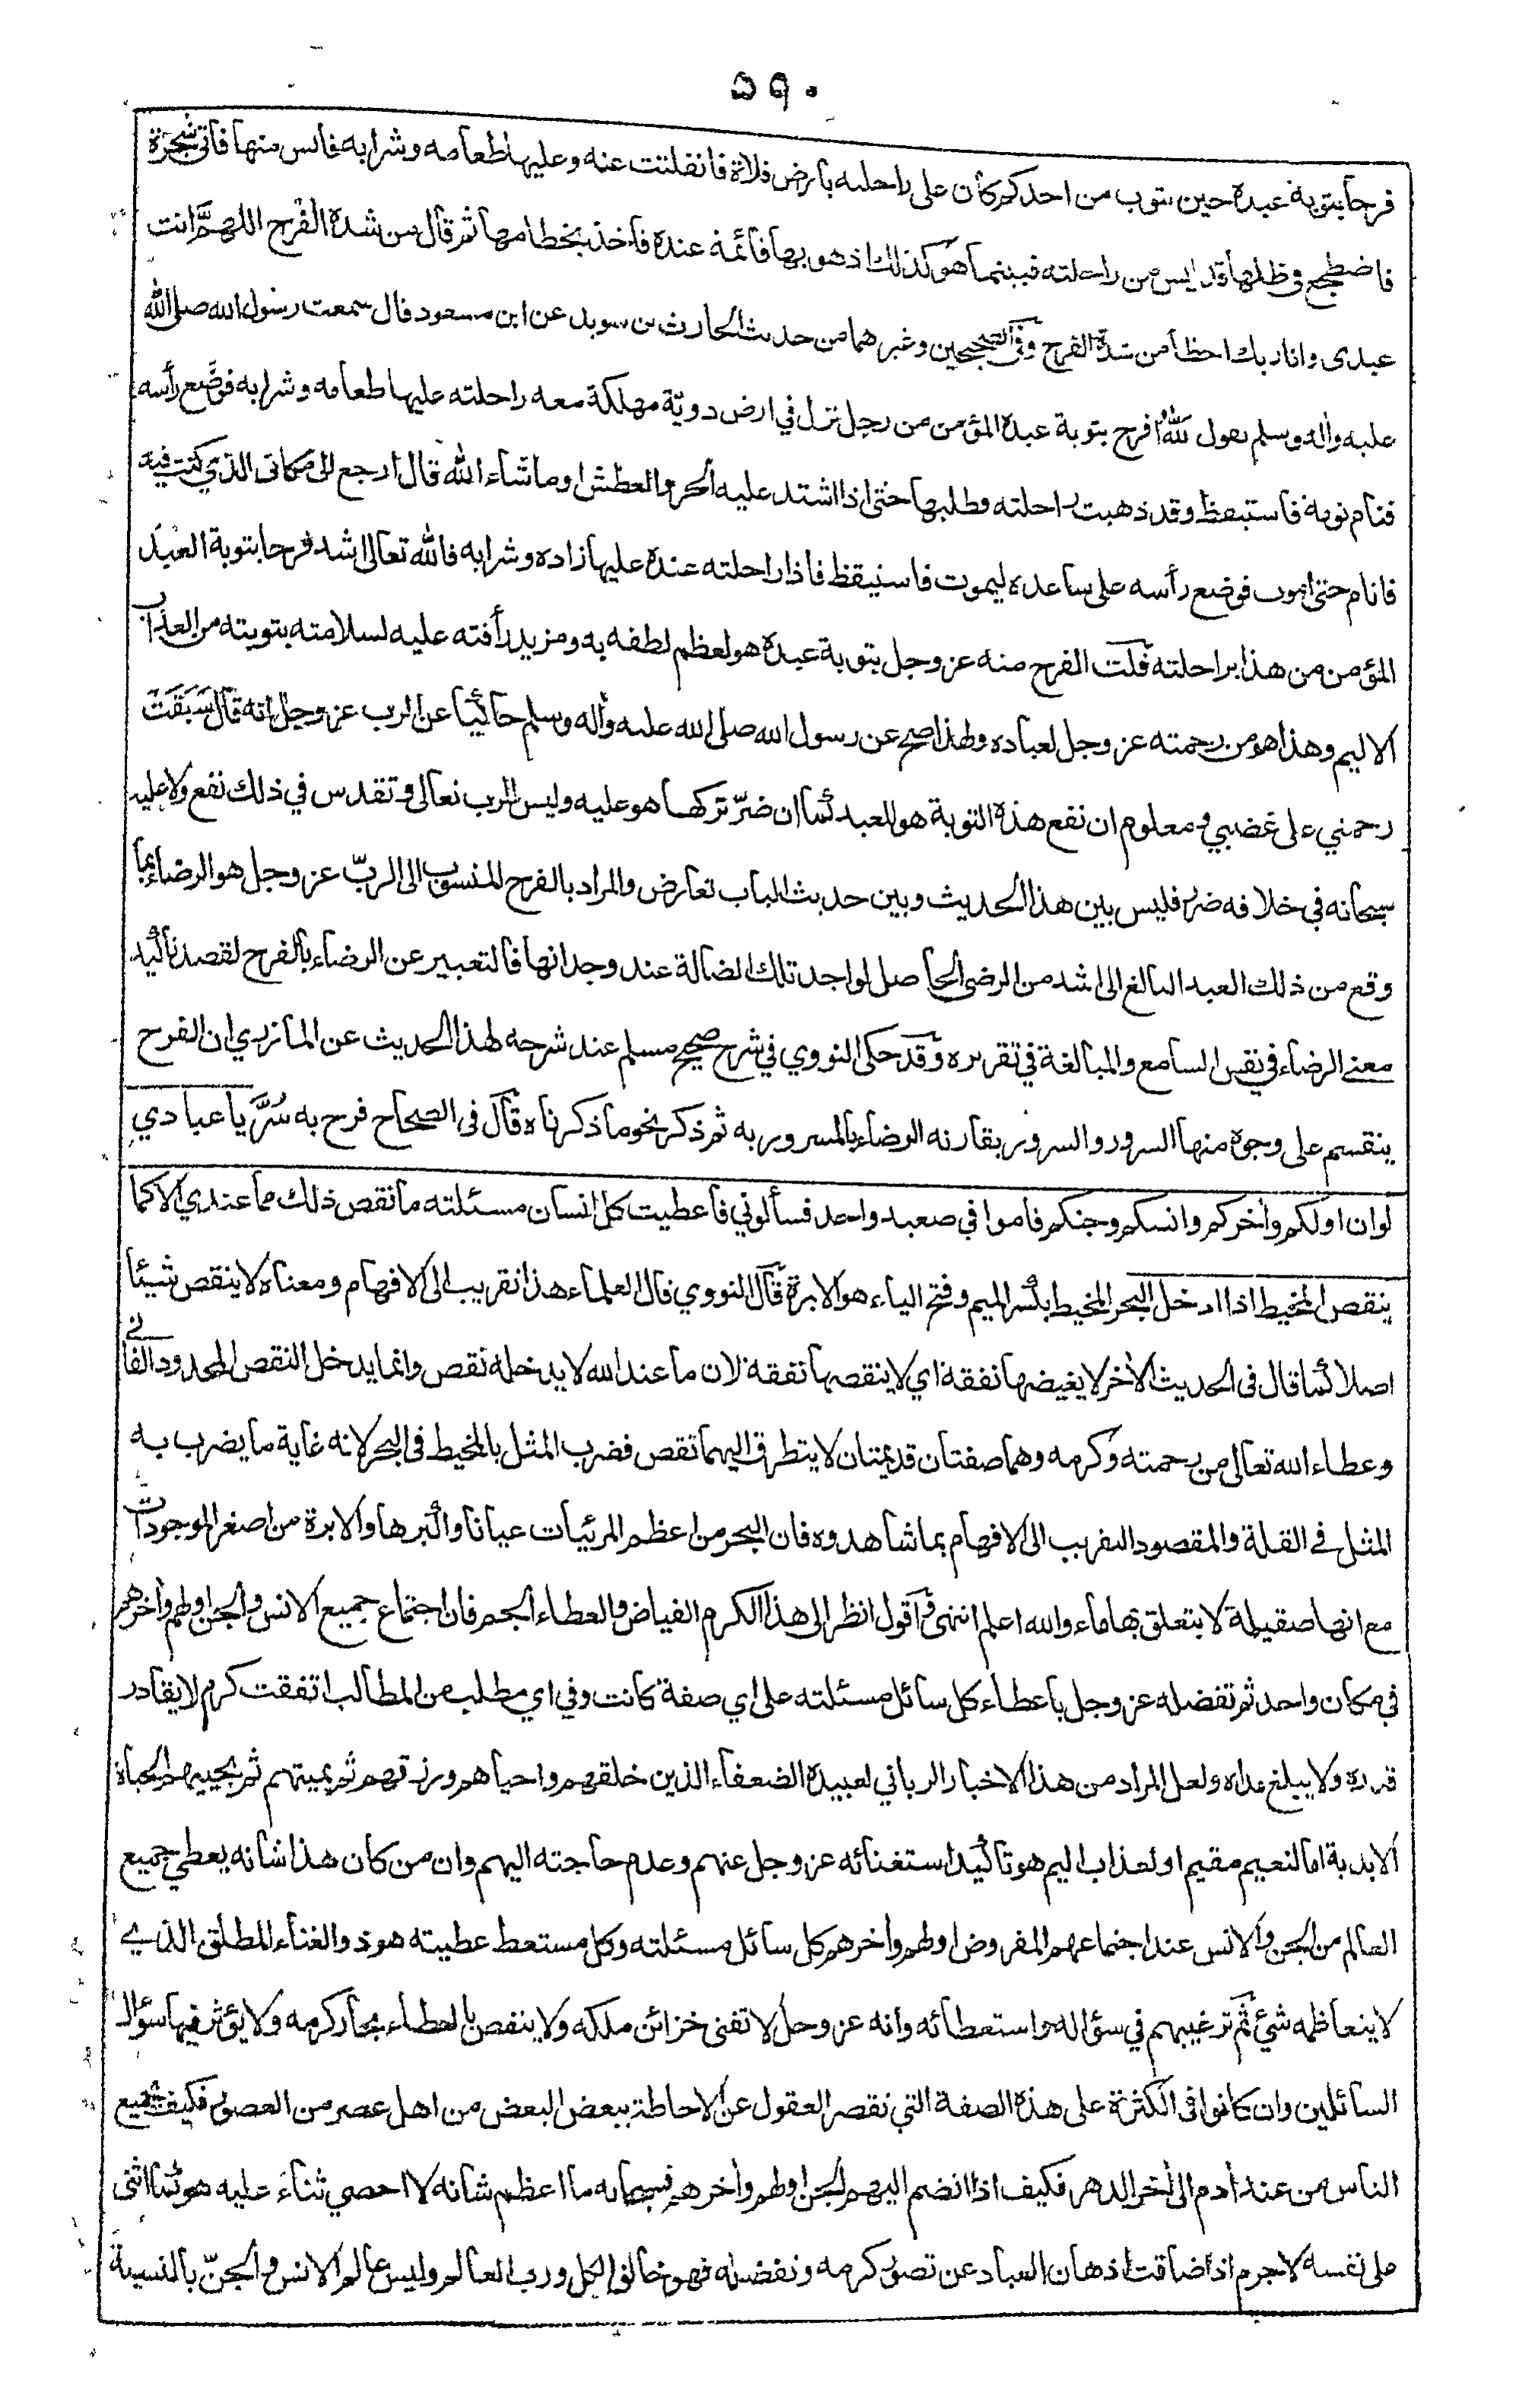 ٥٩٠
فرحا بتوبة عبده حين يتوب من احدكم كان على راحلته بارض فلاة فانفلتت عنه وعليها طعامه وشرابه فايس منها فاتى شجرة
فاضطجع في ظلها قد ايس من راحلته فبينما هو كذلك اذ هو بها قائمة عنده فاخذ بخطامها ثم قال من شدة الفرح اللهم انت
عبدى وانا ربك اخطأ من شدة الفرح وفى الصحيحين وغيرهما من حديث الحارث بن سويد عن ابن مسعود قال سمعت رسول الله صلى الله
عليه واله وسلم يقول لله افرح بتوبة عبده المؤمن من رجل نزل في ارض دوية مهلكة معه راحلته عليها طعامه وشرابه فوضع رأسه
فنام نومة فاستيقظ وقد ذهبت راحلته وطلبها حتى اذا اشتد عليه الحر والعطش او ما شاء الله قال ارجع الى مكانى الذي كنت فيه
فانام حتى اموت فوضع رأسه على ساعده ليموت فاستيقظ فاذا راحلته عنده عليها زاده وشرابه فالله تعالى اشد فرحا بتوبة العبد
المؤمن من هذا براحلته قلت الفرح منه عز وجل بتوبة عبده هو لعظم لطفه به ومزيد رأفته عليه لسلامته بتوبته من العذاب
الاليم وهذا هو من رحمته عز وجل لعباده ولهذا صح عن رسول الله صلى الله عليه وأله وسلم حاكيا عن الرب عز وجل انه قال سَبَقَتْ
رحمتي على غضبي ومعلوم ان نفع هذه التوبة هو للعبد كما ان ضرّ تركها هو عليه وليس للرب تعالى وتقدس في ذلك نفع ولا عليه
سبحانه في خلافه ضر فليس بين هذا الحديث وبين حديث الباب تعارض والمراد بالفرح المنسوب الى الربّ عز وجل هو الرضاء بما
وقع من ذلك العبد البالغ الى اشد من الرضى الحاصل لواجد تلك الضالة عند وجدانها فالتعبير عن الرضاء بالفرح لقصد تأكيد
معنى الرضاء في نفس السامع والمبالغة في تقريره وقد حكى النووي في شرح صحيح مسلم عند شرحه لهذا الحديث عن المازري ان الفرح
ينقسم على وجوه منها السرور والسرور يقارنه الرضاء بالمسرور به ثم ذكر نحو ما ذكرناه قال فى الصحاح فرح به سُرَّ يا عبادي
لو ان اولكم وأخركم وانسكم وجنكم قاموا في صعيد واحد فسألوني فاعطيت كل انسان مسئلته ما نقص ذلك مما عندي الا كما
ينقص المخيط اذا ادخل البحر المخيط بكسر الميم وفتح الياء هو الابرة قال النووي قال العلماء هذا تقريب الى الافهام ومعناه لا ينقص شيئا
اصلا كما قال فى الحديث الأخر لا يغيضها نفقة اي لا ينقصها نفقة لان ما عند الله لا يدخله نقص وانما يدخل النقص المحدود الفاني
وعطاء الله تعالى من رحمته وكرمه وهما صفتان قديمتان لا يتطرق اليهما نقص فضرب المثل بالمخيط فى البحر لانه غاية ما يضرب به
المثل في القلة والمقصود التقريب الى الافهام بما شاهدوه فان البحر من اعظم المرئيات عيانا واكبرها والابرة من اصغر الموجودات
مع انها صقيلة لا يتعلق بها ماء والله اعلم انتهى واقول انظر الى هذا الكرم الفياض والعطاء الجم فان اجتماع جميع الانس والجن اولهم وأخرهم
في مكان واحد ثم تفضله عز وجل باعطاء كل سائل مسئلته على اي صفة كانت وفي اي مطلب من المطالب اتفقت كرم لا يقادر
قدره ولا يبلغ مداه ولعل المراد من هذا الاخبار الرباني لعبيده الضعفاء الذين خلقهم واحياهم ورزقهم ثم يميتهم ثم يحييهم الحياة
الابدية اما لنعيم مقيم او لعذاب اليم هو تأكيد استغنائه عز وجل عنهم وعدم حاجته اليهم وان من كان هذا شانه يعطي جميع
العالم من الجن والانس عند اجتماعهم المفروض اولهم وأخرهم كل سائل مسئلته وكل مستعط عطيته هو ذو الغناء المطلق الذي
لا يتعاظمه شئ ثم ترغيبهم في سؤاله واستعطائه وانه عز وجل لا تفنى خزائن ملكه ولا ينقص بالعطاء بحار كرمه ولا يؤثر فيها سؤال
السائلين وان كانوا فى الكثرة على هذه الصفة التي تقصر العقول عن الاحاطة ببعض البعض من اهل عصر من العصور فكيف بجميع
الناس من عند أدم الى أخر الدهر فكيف اذا انضم اليهم الجن اولهم وأخرهم فسبحانه ما اعظم شانه لا احصي ثناءً عليه هو كما اثنى
على نفسه لا جرم اذا ضاقت اذهان العباد عن تصور كرمه وتفضله فهو خالق الكل ورب العالم وليس عالم الانس والجنّ بالنسبة